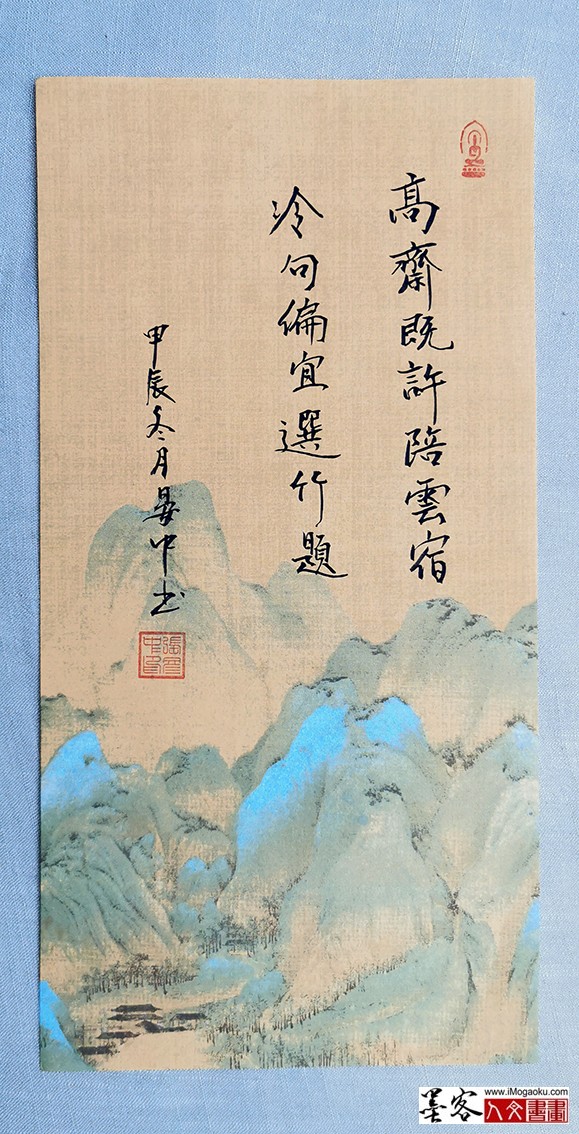 高齋既許陪雲宿
冷句偏宜選竹題
甲辰冬月晏中书
www.iMogaoku.com
墨客 人文書畫